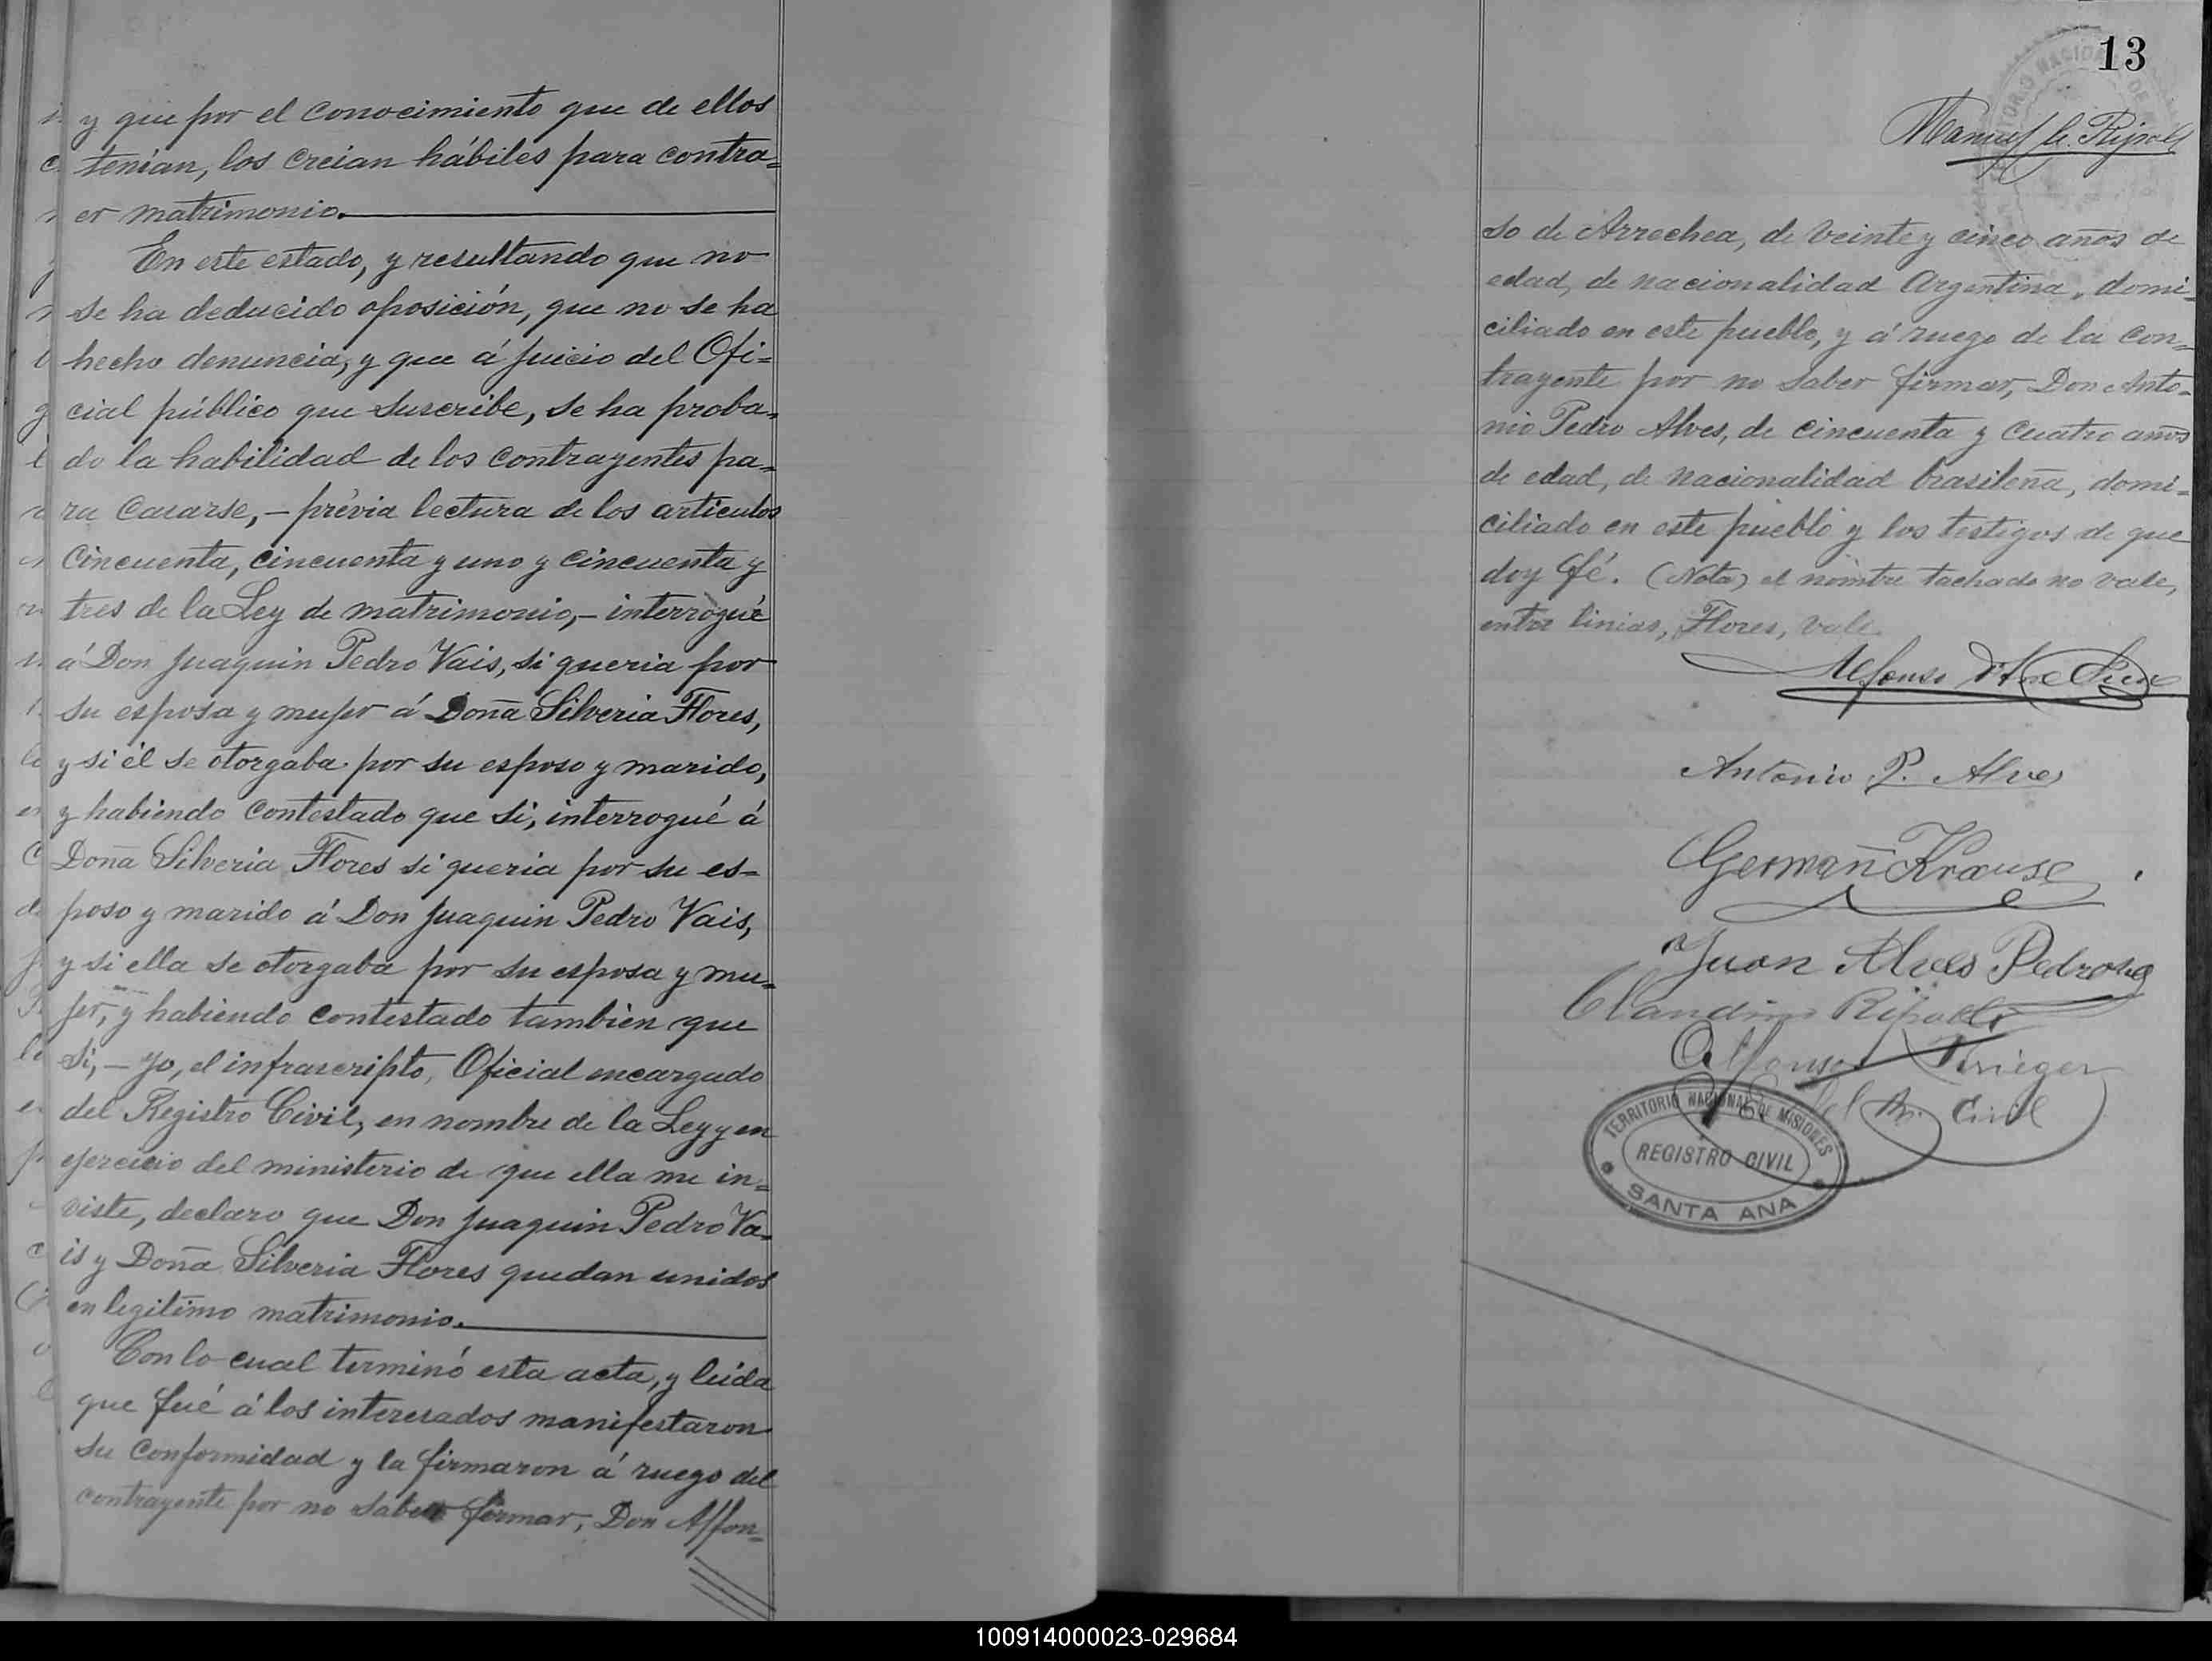 y que por el conocimiento que de ellos
tenían, los creían hábiles para contra=
er matrimonio.
En este estado, y resultando que no
se ha deducido oposición, que no se ha
hecho denuncia, y que á juicio del Ofi=
cial público que suscribe, se ha proba=
do la habilidad de los contrayentes pa=
ra casarse, - prévia lectura de los artículos
cincuenta, cincuenta y uno y cincuenta y
tres de la Ley de matrimonio, - interrogué
á Don Juaquin Pedro Vais, si queria por
su esposa y mujer á Doña Silveria Flores,
y si él se otorgaba por su esposo y marido,
y habiendo contestado que si, interrogué á
Doña Silveria Flores si queria por su es=
poso y marido á Don Juaquin Pedro Vais,
y si ella se otorgaba por su esposa y mu=
jer, y habiendo contestado tambien que
si, - yo, el infrascripto, Oficial encargado
del Registro Civil, en nombre de la Ley y en
ejercicio del ministerio de que ella me in=
viste, declaro que Don Juaquin Pedro Va=
is y Doña Silveria Flores quedan unidos
en legítimo matrimonio.
Con lo cual terminó esta acta, y leida
que fué á los interesados manifestaron
su conformidad y la firmaron á ruego del
contrayente por no saber firmar, Don Alfon=
13
Manuel C. Ripoll
so de Arrechea, de veinte y cinco años de
edad, de nacionalidad Argentina, domi=
ciliado en este pueblo, y á ruego de la con=
trayente por no saber firmar, Don Anto=
nio Pedro Alves, de cincuenta y cuatro años
de edad, de nacionalidad brasileña, domi=
ciliado en este pueblo y los testigos de que
doy fé. (Nota) el nombre tachado no vale,
entre linias, Flores, vale.
Alfonso
Antonio P. Alves
German Krause
Juan Alves Pedroso
Claudino Ripoll
Alfonso Krieger
del Civil
TERRITORIO NACIONAL DE MISIONES
REGISTRO CIVIL
SANTA ANA
100914000023-029684